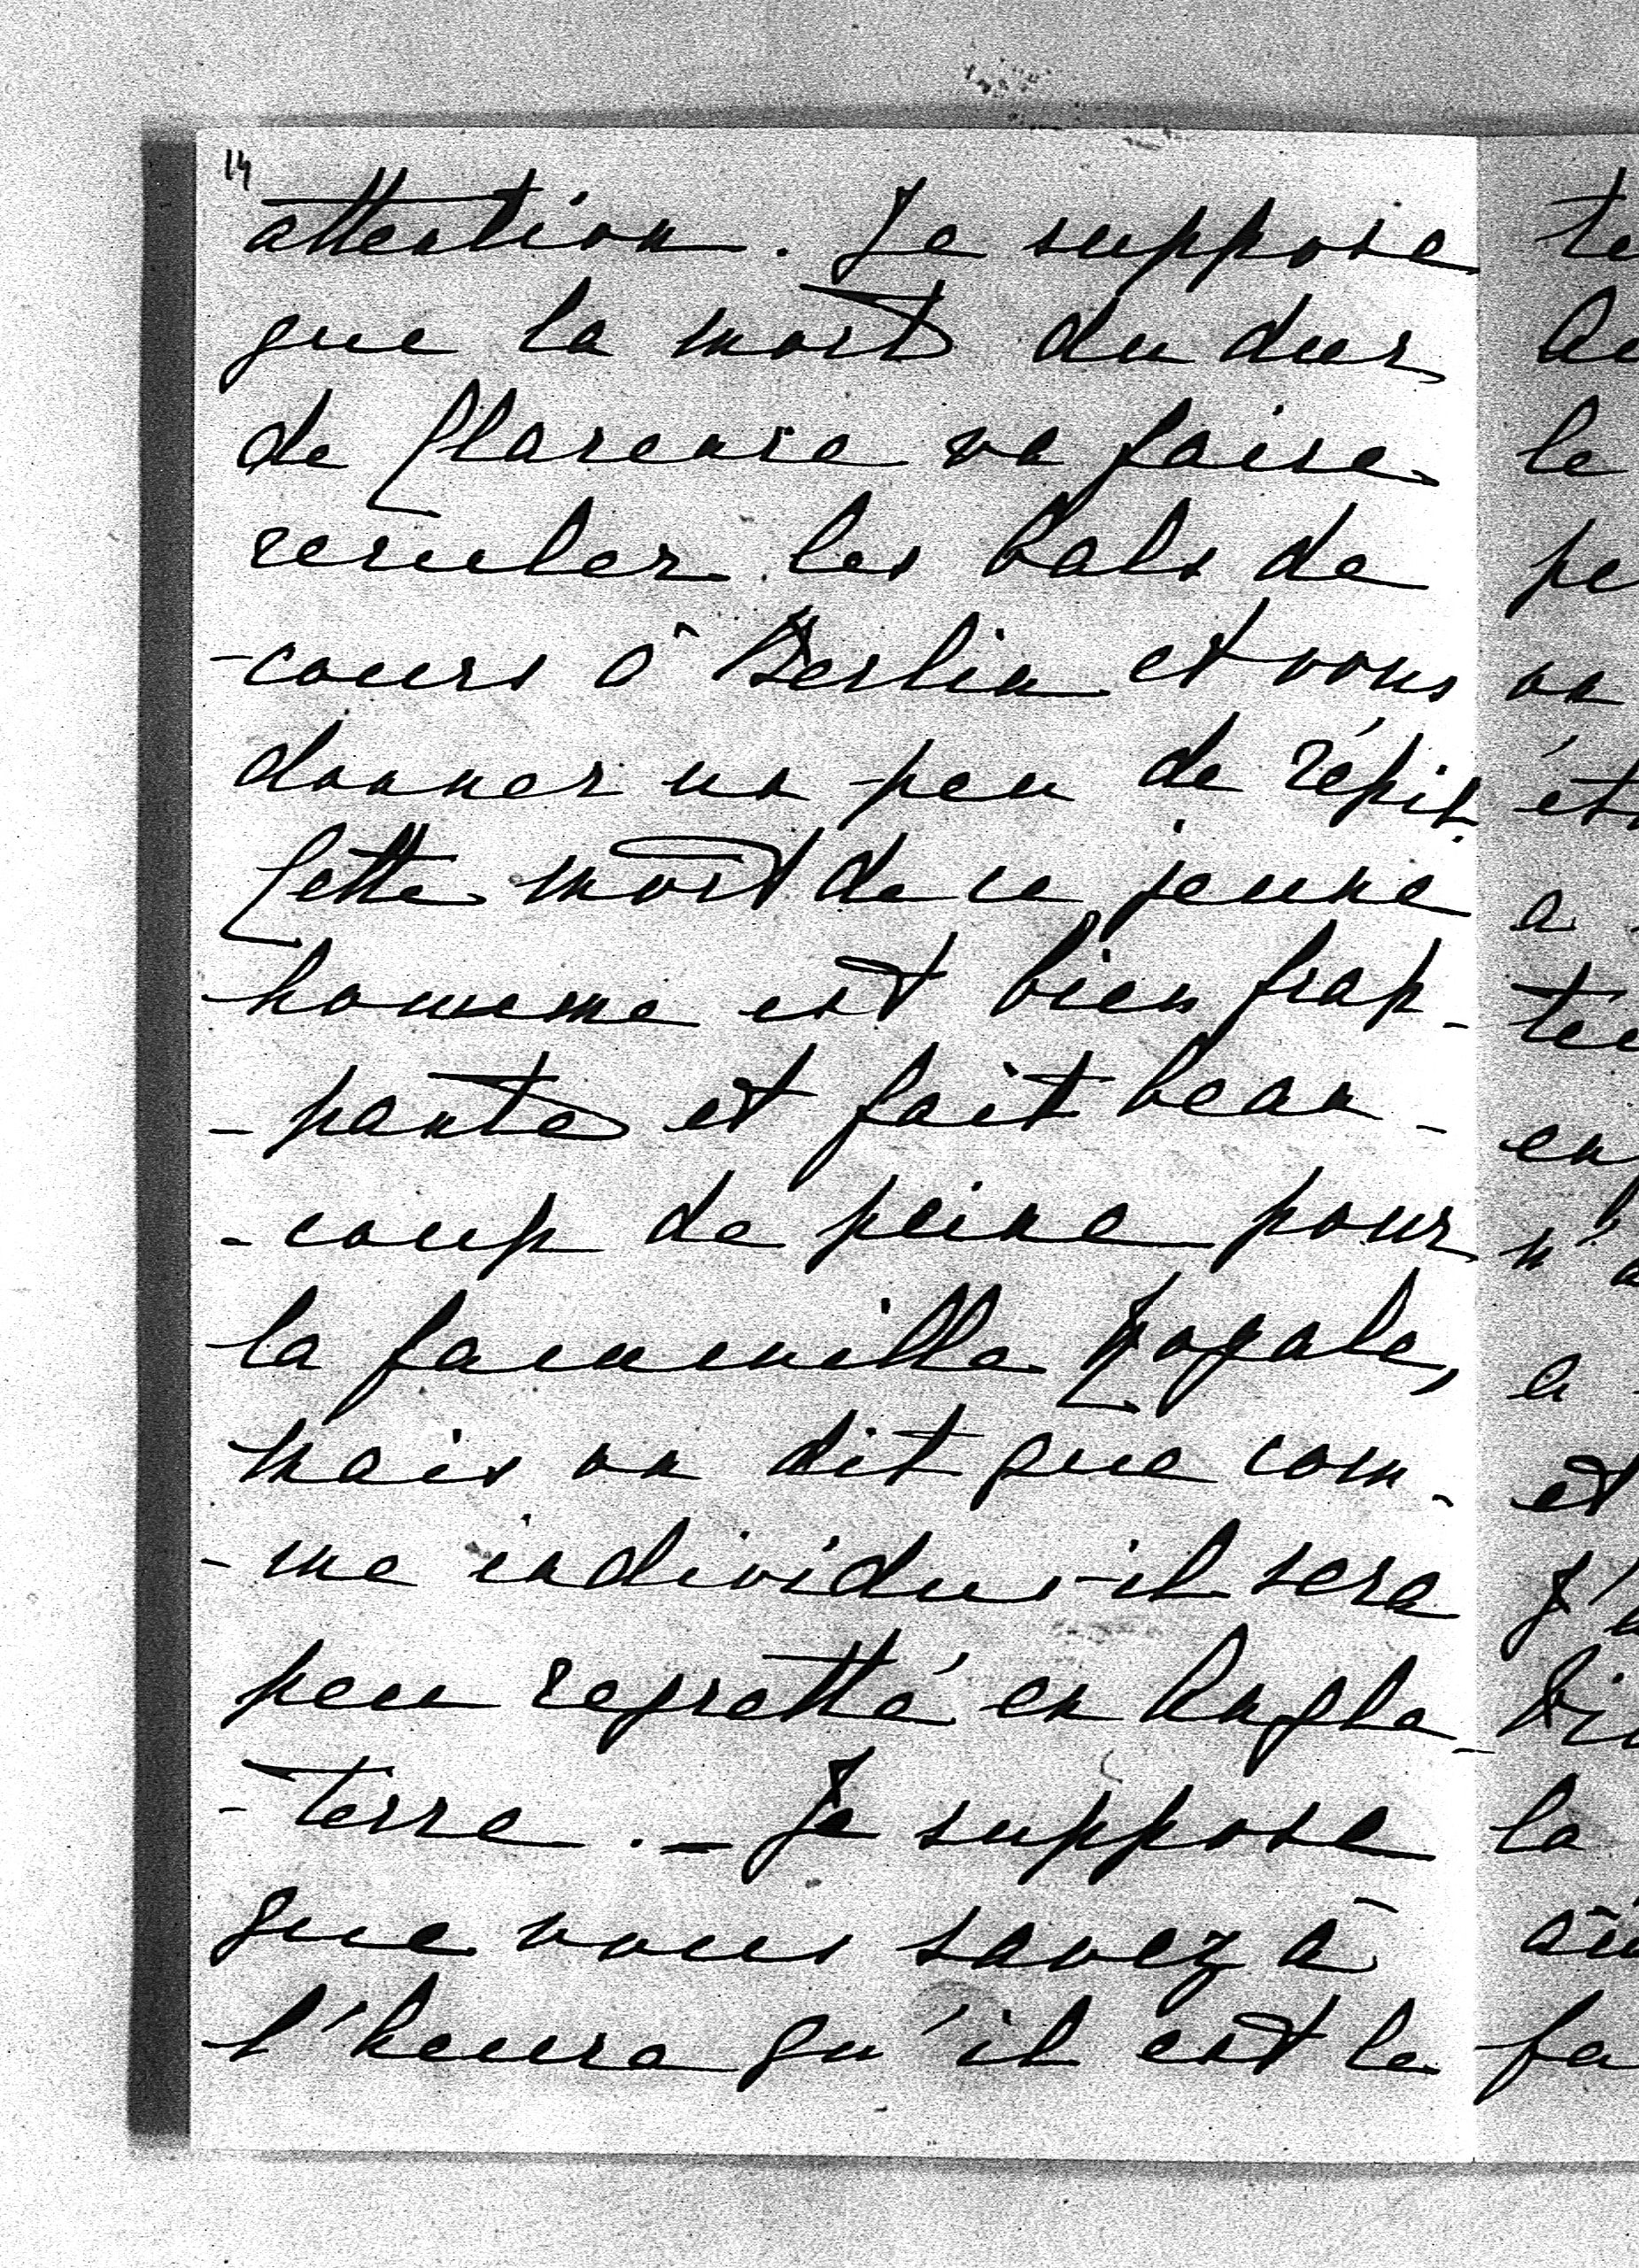 14
attention. Je suppose
que la mort du duc
de Clarence va faire
reculer les bals de
-cours à Berlin et vous
donner un peu de répit.
Cette mort de ce jeune
homme est bien frap-
-pante et fait beau-
-coup de peine pour
la fammille Royale,
mais on dit que com-
-me individus-il sera
peu regretté en Angle-
-terre. _ Je suppose
que vous savez à
l'heure qu'il est le